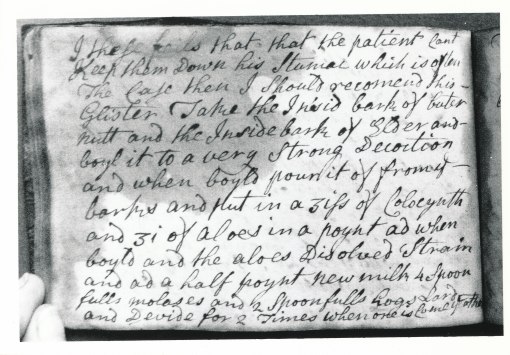 I these that that the patient Cant
Keep them Down his Stumac which is often
The Case then I Should recomend this
Glister Take the Insid bark of buter
nutt and the Inside bark of Elder and
boyl it to a very Strong Decoction
and when boyld pour it of from
barks and put in a ʒiss of Colocynth
and ʒi of aloes in a poynt ad when
boyld and the aloes Disolved Strain
and ad a half poynt new milk 4 Spoon
fulls molases and 2 Spoonfulls hogs Lard
and Devide for 2 Times when one is Come